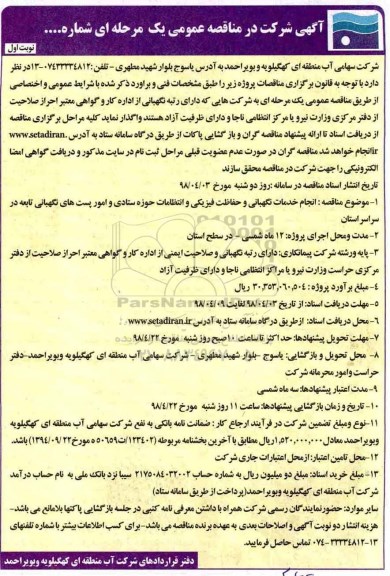 آگهی شرکت در مناقصه عمومی یک مرحله ای شماره....
نوبت اول
شرکت سهامی آب منطقه ای کهگیلویه و بویراحمد به آدرس یاسوج بلوار شهید مطهری - تلفن: ۱۳-۰۷۴۳۳۳۳۴۸۱۲ در نظر
دارد با توجه به قانون برگزاری مناقصات پروژه زیر را طبق مشخصات فنی و برآورد ذکر شده با شرایط عمومی و اختصاصی
از طریق مناقصه عمومی یک مرحله ای به شرکت هایی که دارای رتبه نگهبانی از اداره کار و گواهی معتبر احراز صلاحیت
از دفتر مرکزی وزارت نیرو یا مرکز انتظامی ناجا و دارای ظرفیت آزاد هستند واگذار نماید کلیه مراحل برگزاری مناقصه
از دریافت اسناد تا ارائه پیشنهاد مناقصه گران و باز گشایی پاکات از طریق درگاه سامانه ستاد به آدرس www.setadiran.
ir انجام خواهد شد مناقصه گران در صورت عدم عضویت قبلی مراحل ثبت نام در سایت مذکور و دریافت گواهی امضا
الکترونیکی را جهت شرکت در مناقصه محقق سازند
تاریخ انتشار اسناد مناقصه در سامانه :روز دو شنبه مورخ ۹۸/۰۴/۰۳
۱- موضوع مناقصه : انجام خدمات نگهبانی و حفاظت فیزیکی و انتظامات حوزه ستادی و امور پست های نگهبانی تابعه در
سراسر استان
۲- مدت ومحل اجرای پروژه: ۱۲ ماه شمسی - در سطح استان
۳- پایه ورشته شرکت پیمانکاری: دارای رتبه نگهبانی و صلاحیت ایمنی از اداره کار و گواهی معتبر احراز صلاحیت از دفتر
مرکزی حراست وزارت نیرو یا مراکز انتظامی ناجا و دارای ظرفیت آزاد
۴- مبلغ برآورد پروژه : ۳۰,۳۵۳,۰۶۰,۵۰۴ ریال
۵- مهلت دریافت اسناد: از تاریخ ۹۸/۰۴/۰۳ لغایت ۹۸/۰۴/۰۹
۶- محل دریافت اسناد: ازطریق درگاه سامانه ستاد به آدرس www.setadiran.ir
۷- مهلت تحویل پیشنهادها: حداکثر تا ساعت ۱۰ صبح روز شنبه مورخ ۹۸/۴/۲۲
۸- محل تحویل و بازگشایی: یاسوج -بلوار شهید مطهری - شرکت سهامی آب منطقه ای کهگیلویه وبویراحمد-دفتر
حراست وامور محرمانه شرکت
۹- مدت اعتبار پیشنهادها: سه ماه شمسی
۱۰- تاریخ و زمان بازگشایی پیشنهادها: ساعت ۱۱ روز شنبه مورخ ۹۸/۴/۲۲
۱۱- نوع ومبلغ تضمین شرکت در فرآیند ارجاع کار : ضمانت نامه بانکی به نفع شرکت سهامی آب منطقه ای کهگیلویه
وبویراحمد معادل ۱,۵۲۰,۰۰۰,۰۰۰ ریال مطابق با آخرین بخشنامه مربوطه (۱۲۳۴۰۲/ت۵۰۶۵۹ه مورخ ۱۳۹۴/۰۹/۲۲) باشد.
۱۲- محل تامین اعتبار: ازمحل اعتبارات جاری شرکت
۱۳- مبلغ خرید اسناد: مبلغ دو میلیون ریال به شماره حساب ۲۱۷۵۰۸۴۰۳۲۰۰۲ سیبا نزد بانک ملی به نام حساب درآمد
شرکت آب منطقه ای کهگیلویه وبویراحمد(پرداخت از طریق سامانه ستاد)
سایر موارد: حضور نمایندگان رسمی شرکت همراه با داشتن معرفی نامه کتبی در جلسه بازگشایی پاکتها بلامانع می باشد-
هزینه انتشار دو نوبت آگهی و اصلاحات بعدی به عهده برنده مناقصه می باشد-برای کسب اطلاعات بیشتر با شماره تلفنهای
۱۳-۳۳۳۳۴۸۱۲-۰۷۴ تماس حاصل فرمایید.
دفتر قراردادهای شرکت آب منطقه ای کهگیلویه وبویراحمد